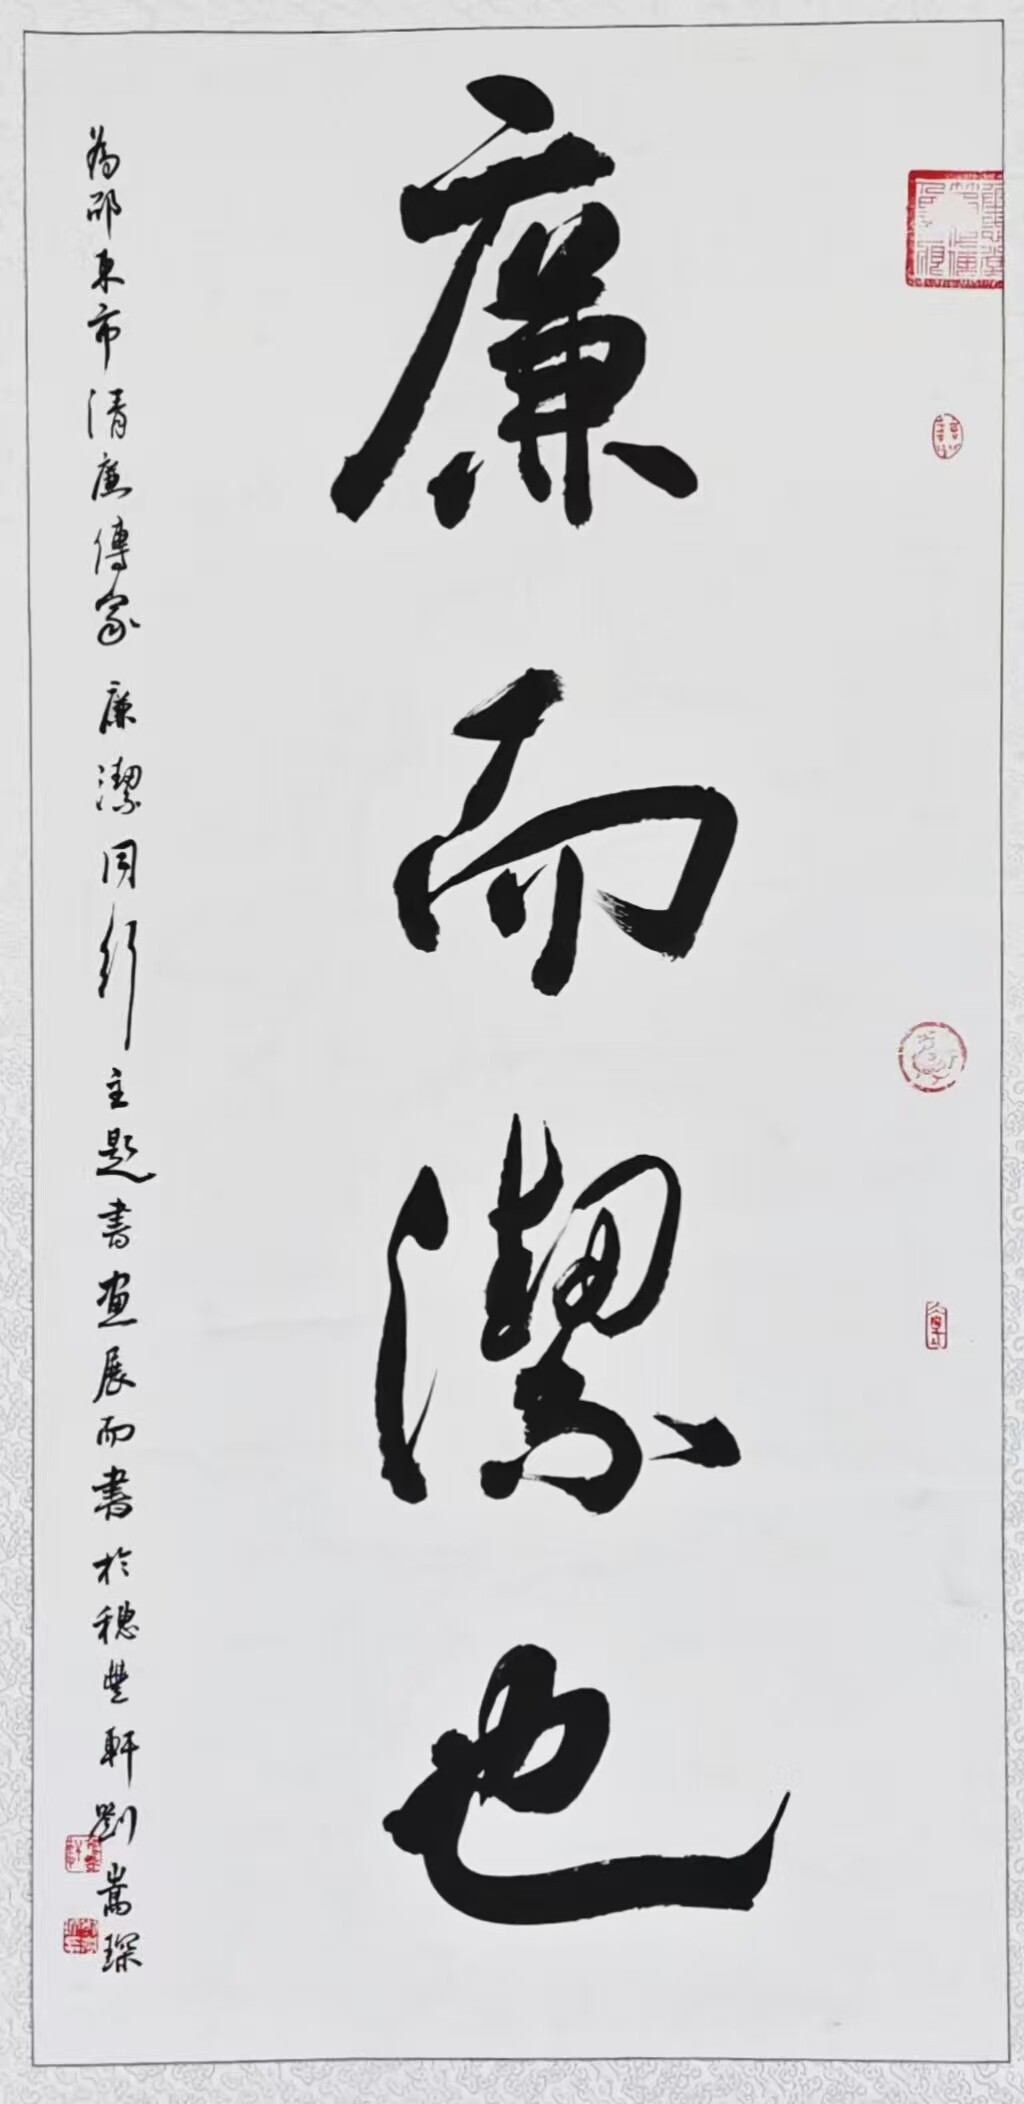 廉而潔也
為邵東市清廉傳家廉潔同行主題書画展而書於穗豐軒劉嵩琛